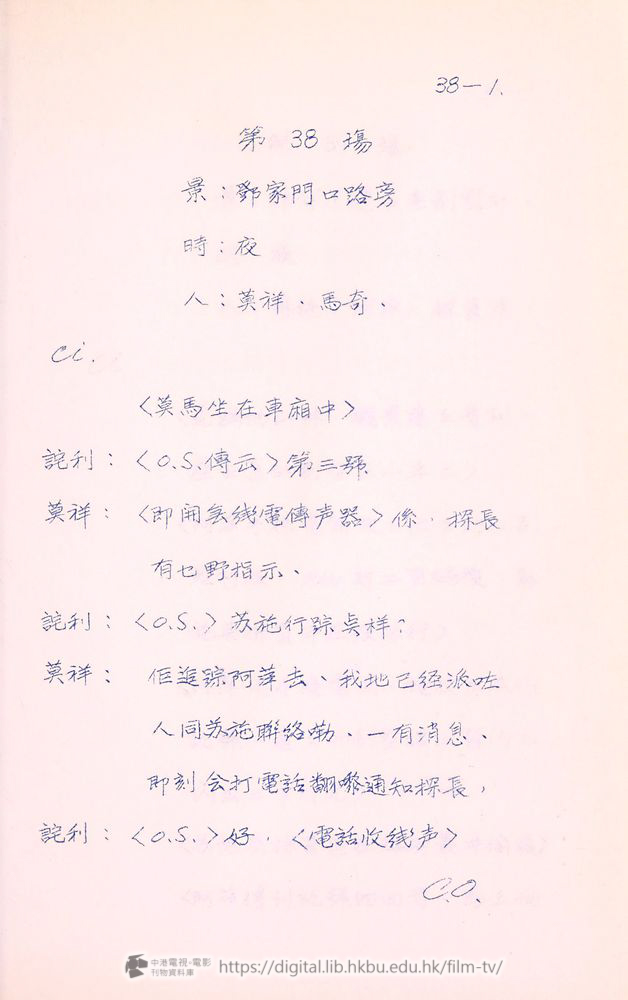 38-1.
第 38 場
景：鄧家門口路旁
時：夜
人：莫祥、馬奇、
Ci.
〈莫馬坐在車廂中〉
詫利：〈O.S.傳云〉第三號
莫祥：〈即開無线電傳声器〉係．探長
有乜野指示、
詫利：〈O.S.〉苏施行踪點样？
莫祥：佢追踪阿萍去、我地已经派咗
人同苏施聯络嘞、一有消息、
即刻会打電話翻嚟通知探長，
詫利：〈O.S.〉好．〈電話收线声〉
C.O.
中港電視·電影
刊物資料庫
https://digital.lib.hkbu.edu.hk/film-tv/